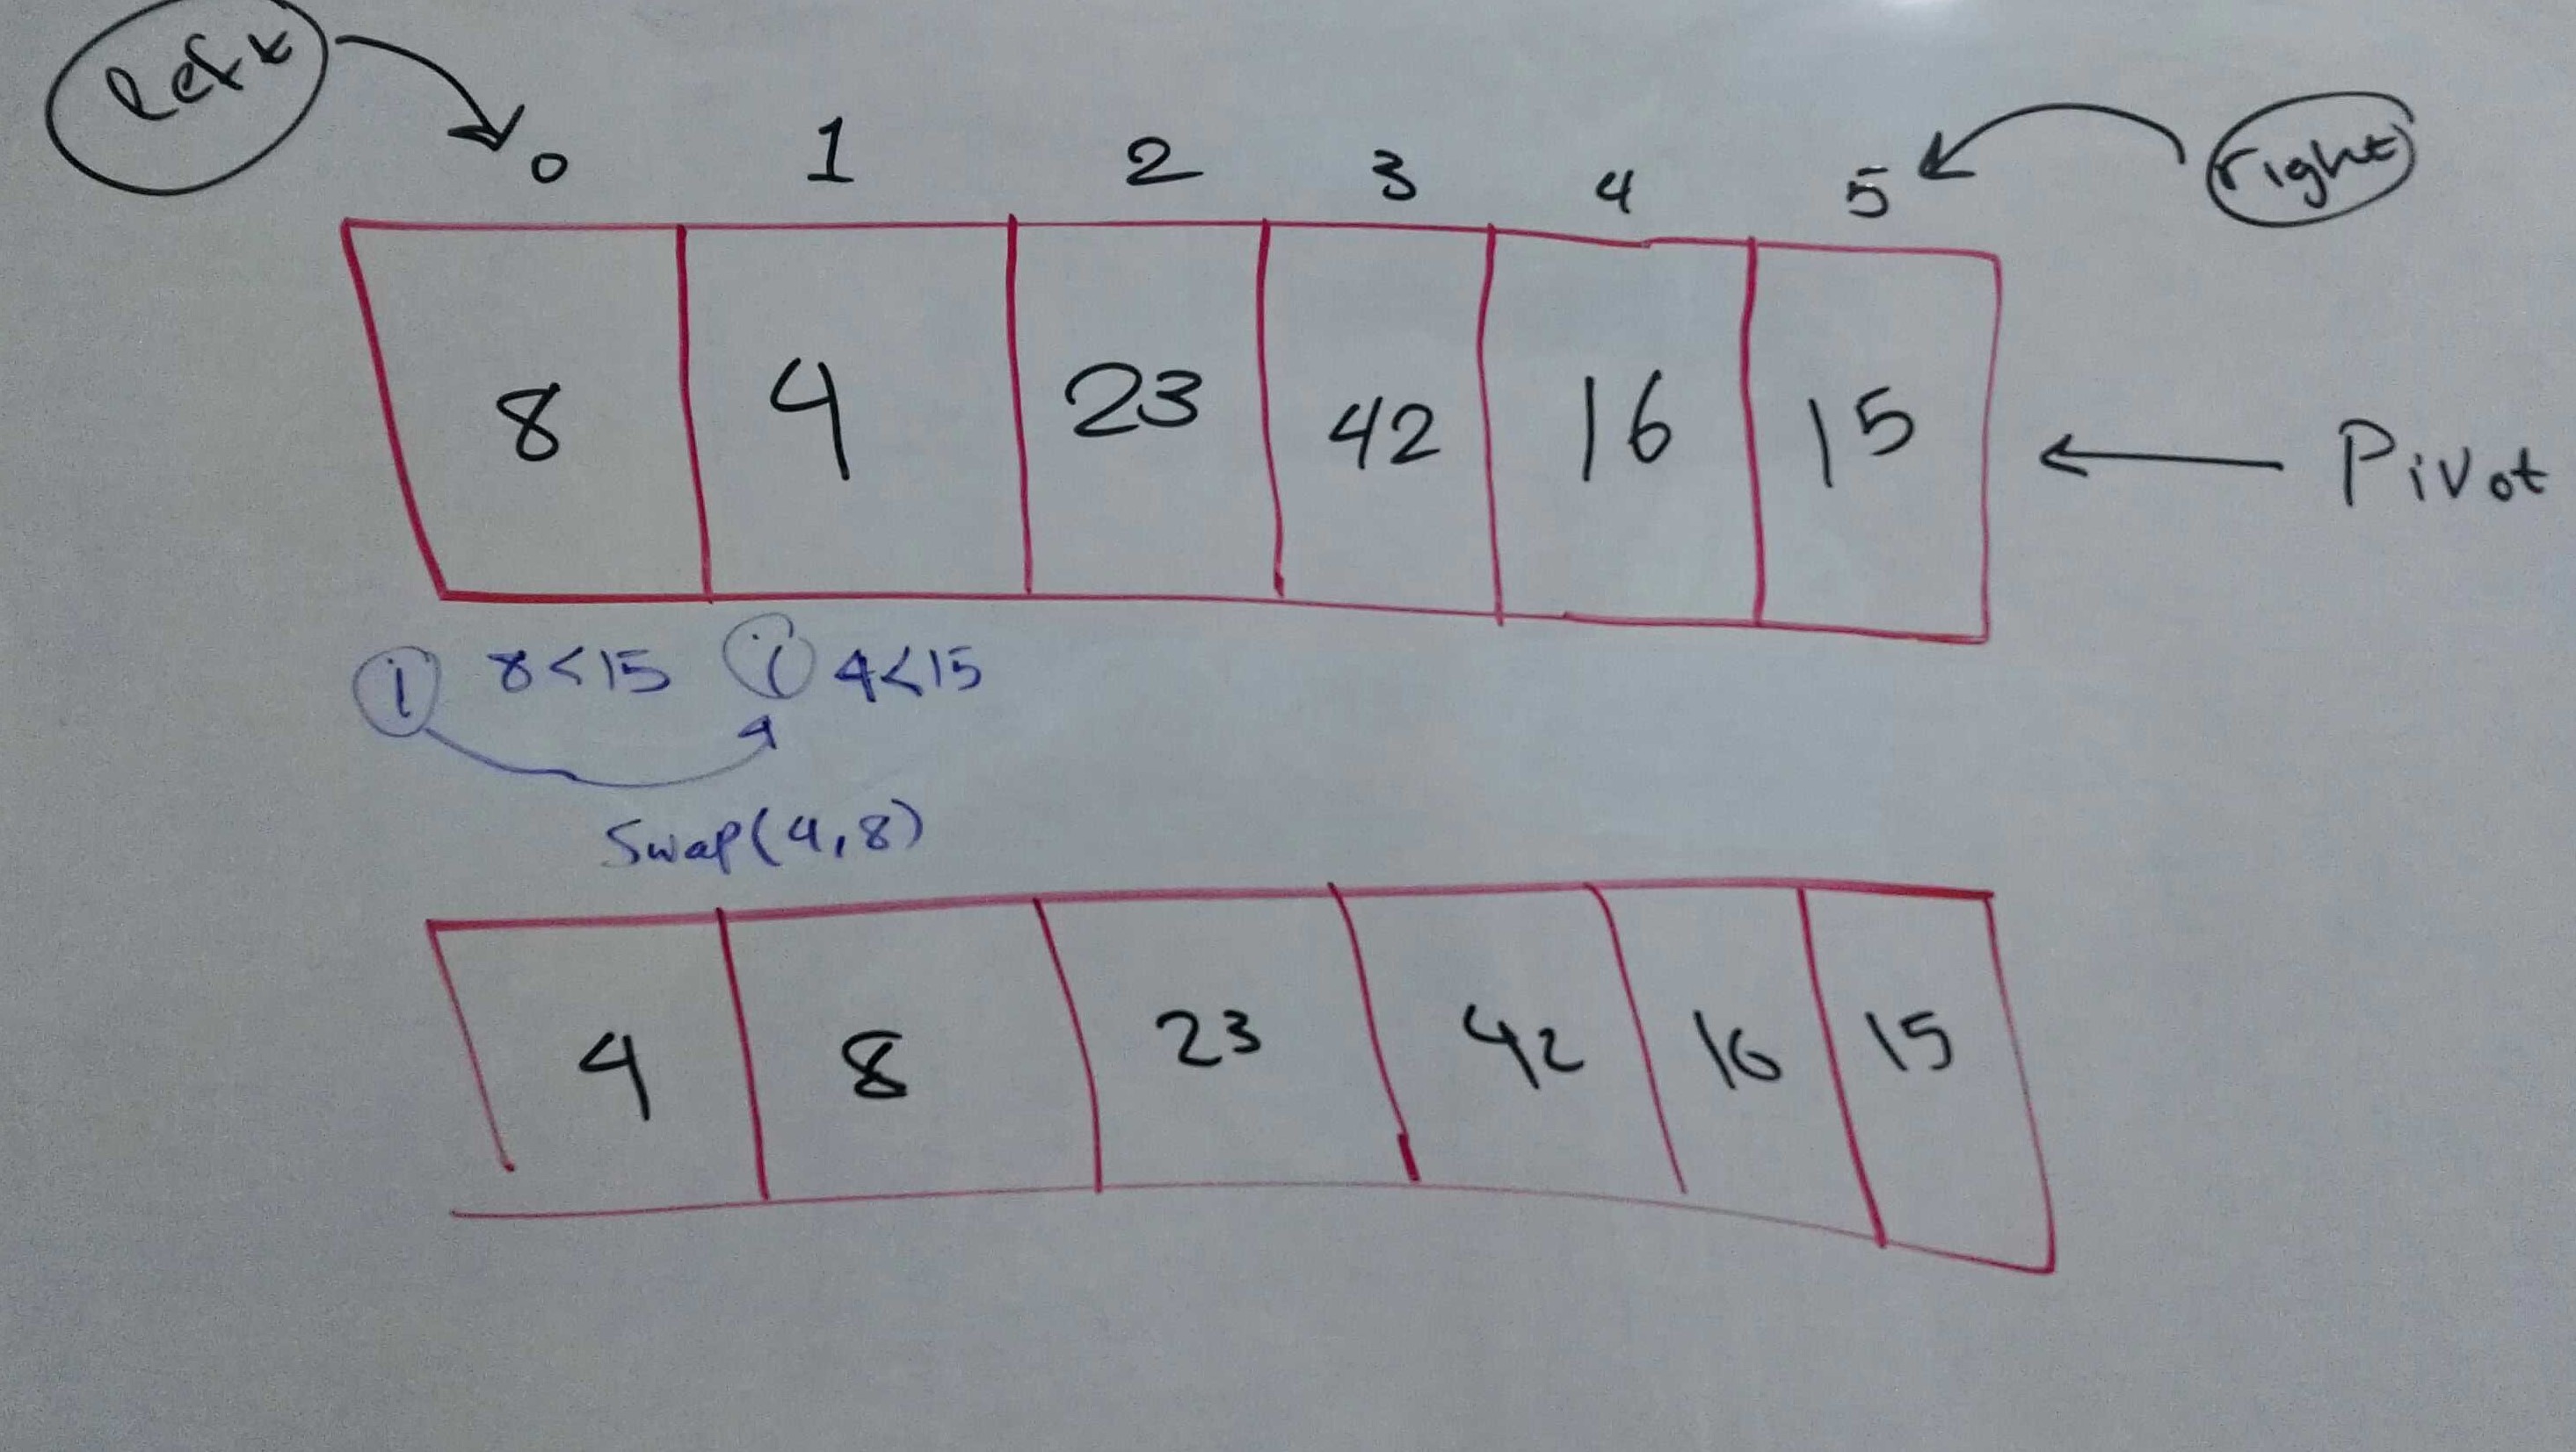 left
0 1 2 3 4 5
right
8 4 23 42 16 15
Pivot
i 8<15 i 4<15
Swap(4,8)
4 8 23 42 16 15